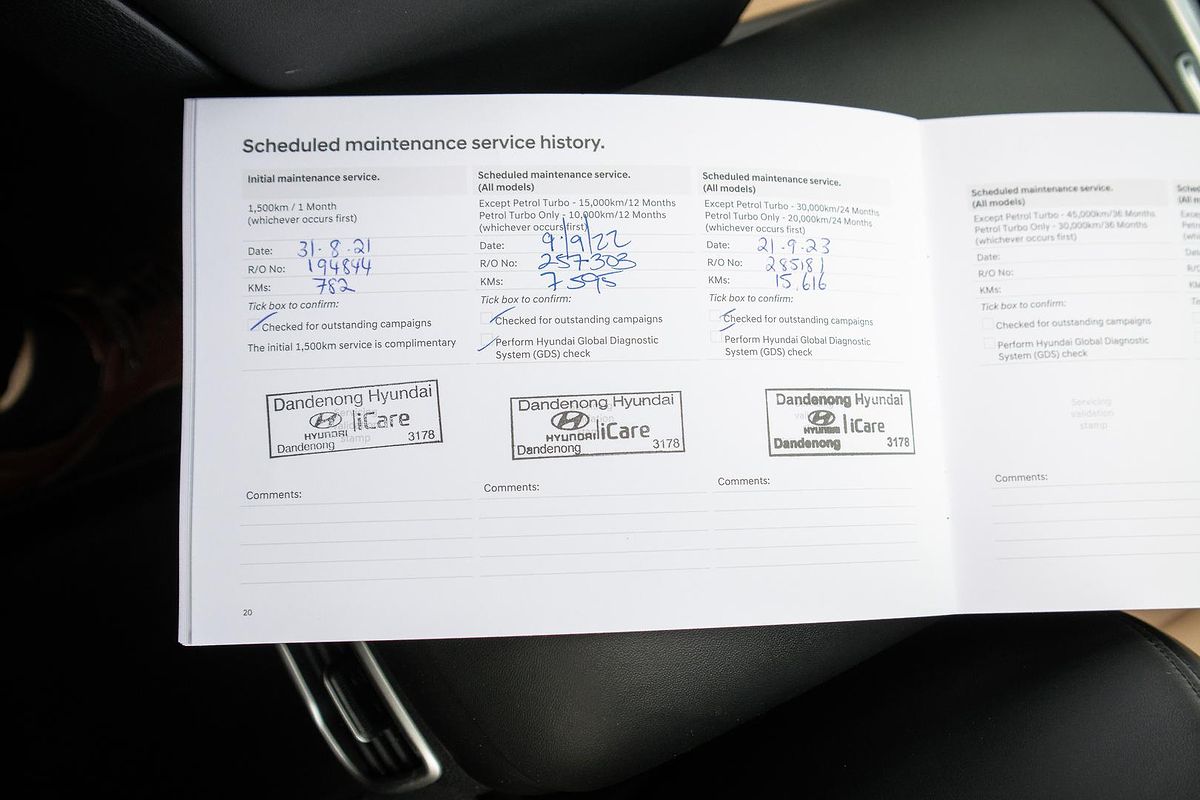 Scheduled maintenance service history.
Initial maintenance service.
1,500km / 1 Month
(whichever occurs first)
Date: 31.8.21
R/O No: 194844
KMs: 782
Tick box to confirm:
Checked for outstanding campaigns
The initial 1,500km service is complimentary
Dandenong Hyundai
HYUNDAI iCare
Dandenong 3178
Comments:
Scheduled maintenance service.
(All models)
Except Petrol Turbo - 15,000km/12 Months
Petrol Turbo Only - 10,000km/12 Months
(whichever occurs first)
Date: 9/9/22
R/O No: 257303
KMs: 7595
Tick box to confirm:
Checked for outstanding campaigns
Perform Hyundai Global Diagnostic
System (GDS) check
Dandenong Hyundai
HYUNDAI iCare
Dandenong 3178
Comments:
Scheduled maintenance service.
(All models)
Except Petrol Turbo - 30,000km/24 Months
Petrol Turbo Only - 20,000km/24 Months
(whichever occurs first)
Date: 21.9.23
R/O No: 285181
KMs: 15,616
Tick box to confirm:
Checked for outstanding campaigns
Perform Hyundai Global Diagnostic
System (GDS) check
Dandenong Hyundai
HYUNDAI iCare
Dandenong 3178
Comments:
20
Scheduled maintenance service.
(All models)
Except Petrol Turbo - 45,000km/36 Months
Petrol Turbo Only - 30,000km/36 Months
(whichever occurs first)
Date:
R/O No:
KMs:
Tick box to confirm:
Checked for outstanding campaigns
Perform Hyundai Global Diagnostic
System (GDS) check
Servicing
validation
stamp
Comments: